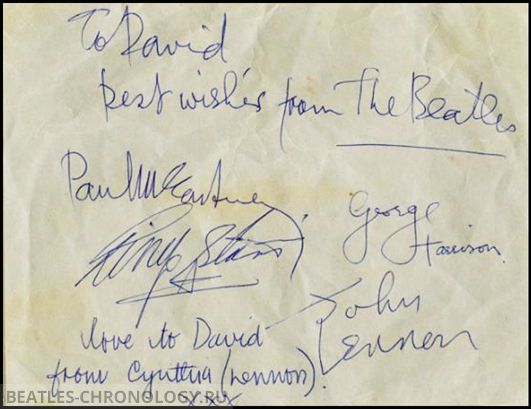 To David
best wishes from The Beatles
Paul McCartney
George
Harrison.
Ringo Starr
John
Lennon
love to David
from Cynthia (Lennon).
xxx
BEATLES-CHRONOLOGY.RU